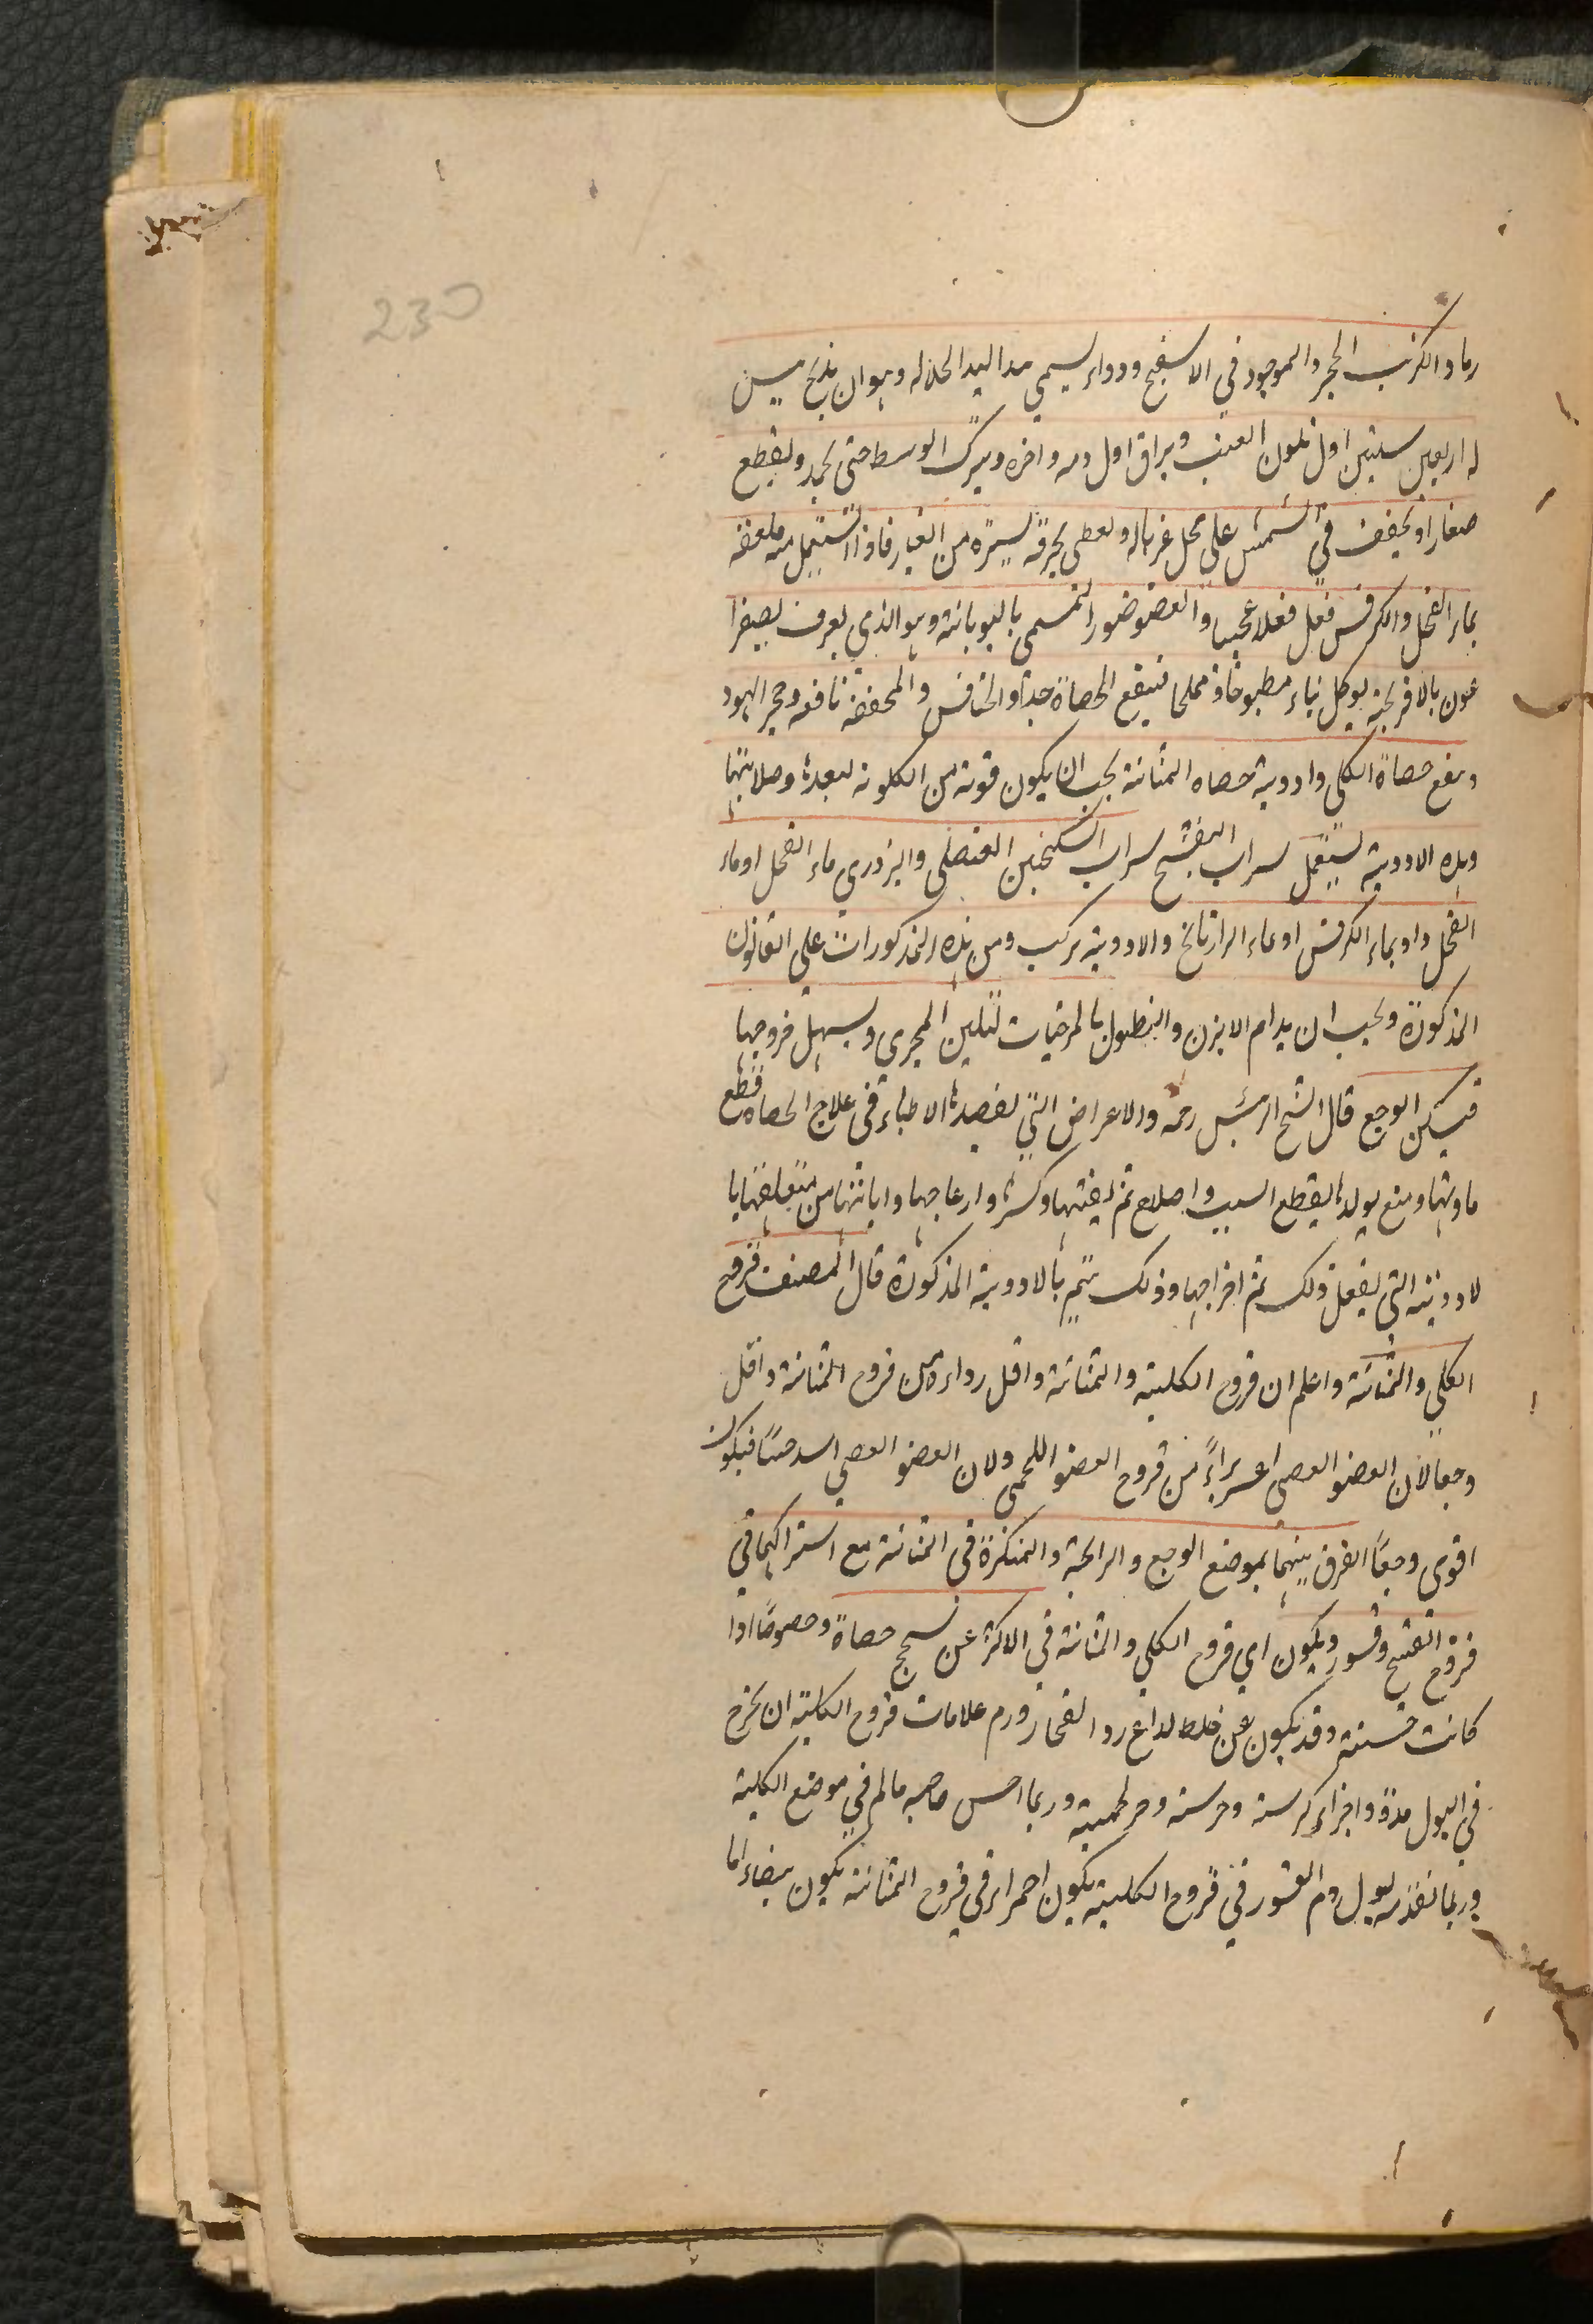 230
رماد الكرنب الحجر والموجود في الاسفنج ودواء يسمى مد اليد الحلاله وهو ان يذبح تيس
له اربعين سنتين اول تلون العنب ويراق اول دمه واخره ويترك الوسط حتى يجمد ويقطع
صغارا ويجفف في الشمس على محل غرباله ويغطى بخرقة يستره من الغبار فاذا استعمل منه ملعقه
بماء الفجل والكرفس فعل فعلا عجيبا والعصفوضور المسمى باليونانية وهو الذي يعرف بصفرا
غون بالافرنجية يوكل نياء مطبوخا ومملحا فينفع الحصاة جدا والخنافس والمجففه نافعه وحجر اليهود
وينفع حصاة الكلى وادوية حصاه المثانة يجب ان يكون قوته من الكلويه لبعدها وصلابتها
وهذه الادوية يستعمل بشراب البنفسج بشراب السكنجبين العنصلى والبزوري ماء الفجل او ماء
الفجل واو بماء الكرفس او بماء الرازيانج والادوية يركب ومن هذه المذكورات على القانون
المذكورة ويجب ان يدام الابزن والنطول بالمرخيات لتلين المجرى ويسهل خروجها
فيسكن الوجع قال الشيخ الرئيس رحمه والاعراض التي يقصدها الاطباء في علاج الحصاه قطع
مادتها ومنع تولدها بقطع السبب واصلاح ثم تفتيتها وكسرها وازعاجها وابانتها من متعلقها با
لادوية التي يفعل ذلك ثم اخراجها وذلك يتم بالادوية المذكورة قال المصنف قروح
الكلي والمثانة واعلم ان قروح الكلية والمثانة واقل رداءة من قروح المثانة واقل
وجعا لان العضو العصبى اعسر براءً من قروح العضو اللحمى ولان العضو العصبى اشد حسًا فيكون
اقوى وجعًا الفرق بينهما بموضع الوجع والرايحة والمنكرة في المثانة مع اشتراكهما في
خروج القيح وقشور ويكون اي قروح الكلي والمثانة في الاكثر عن سحج حصاة وخصوصًا اذا
كانت خشنة وقد يكون عن خلط لداغ او انفجار ورم علامات قروح الكلية ان يخرج
في البول مدة واجزاء كرسنه وخرسنه وحمر لحمية وربما احس صاحبه بالم في موضع الكلية
وربما تقدمه بول دم القشور في قروح الكلية يكون احمر او في قروح المثانة يكون بيضاء اما